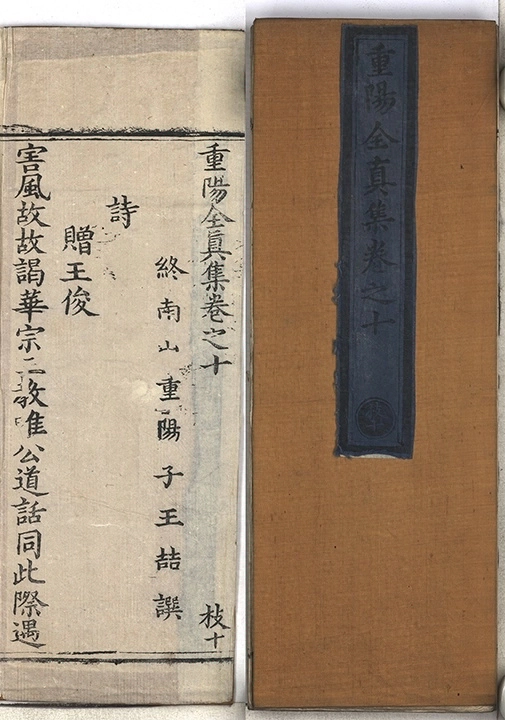 重陽全真集卷之十
重陽全眞集卷之十
枝十
終南山重陽子王嚞譔
詩
贈王俊
害風故故謁華宗二教唯公道話同此際遇